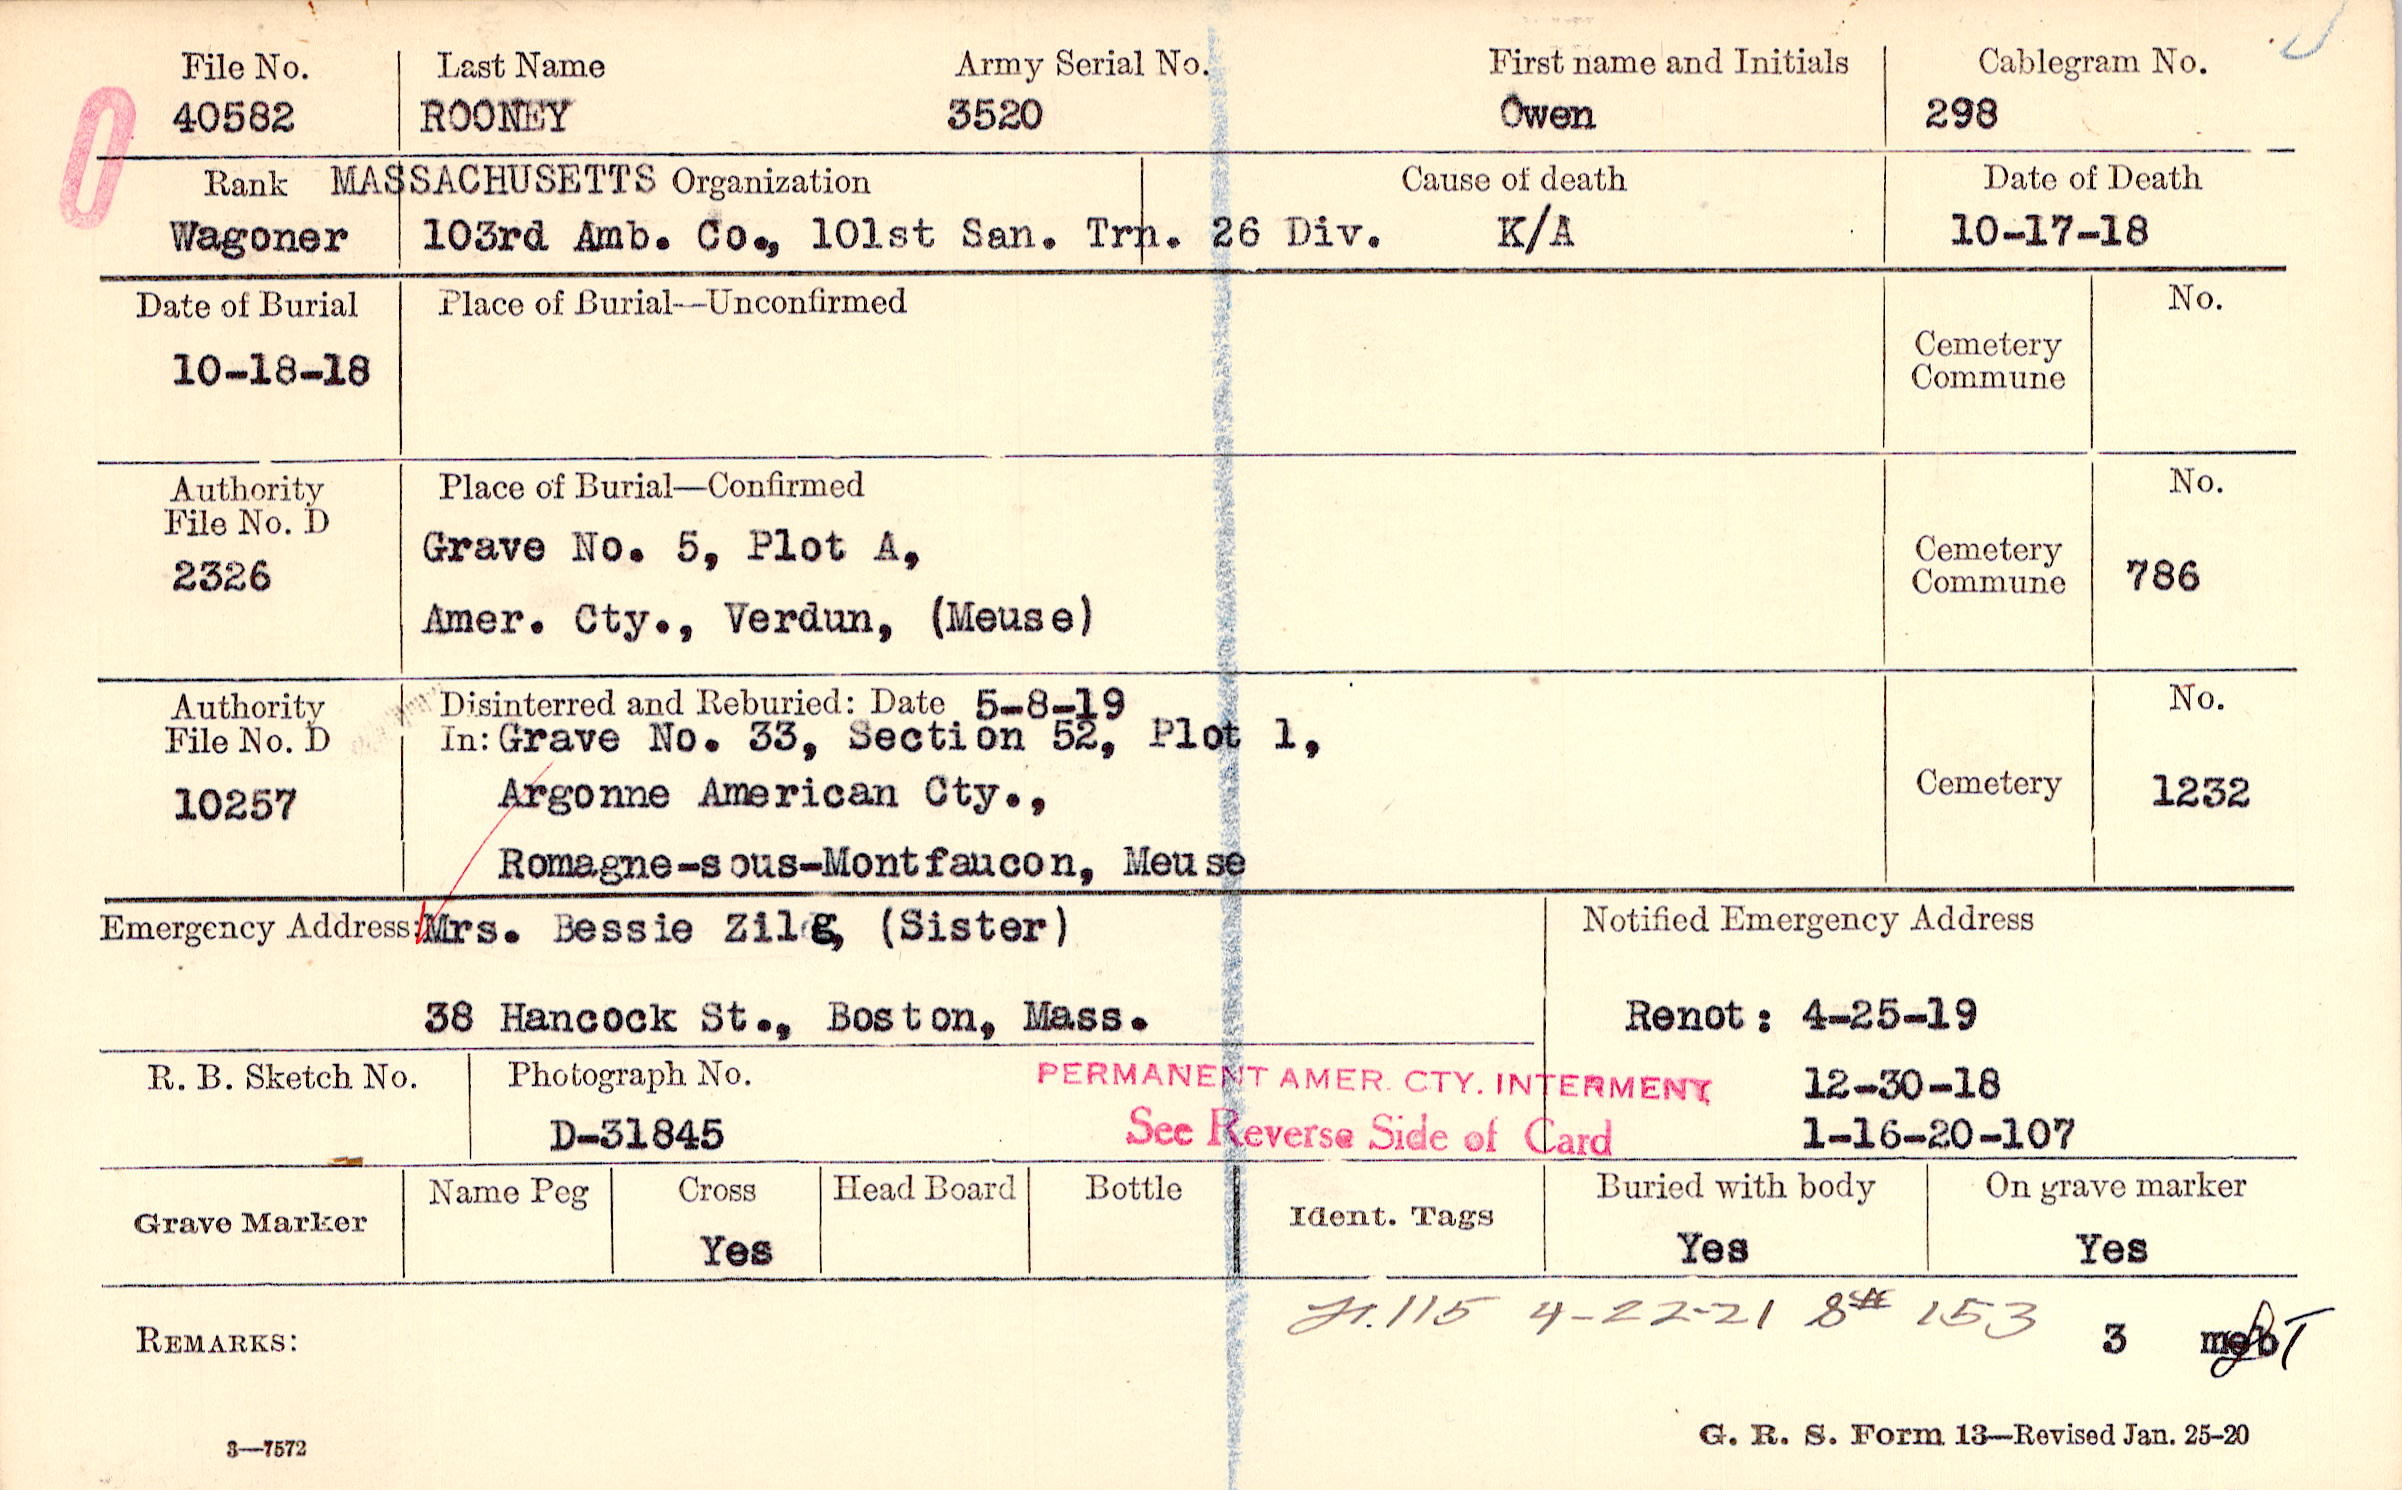 File No. Last Name Army Serial No. First name and Initials Cablegram No.
40582 ROONEY 3520 Owen 298
Rank MASSACHUSETTS Organization Cause of death Date of Death
Wagoner 103rd Amb. Co., 101st San. Trn. 26 Div. K/A 10-17-18
Date of Burial Place of Burial—Unconfirmed No.
10-18-18 Cemetery
Commune
Authority Place of Burial—Confirmed No.
File No. D
Grave No. 5, Plot A, Cemetery
2326 Commune 786
Amer. Cty., Verdun, (Meuse)
Authority Disinterred and Reburied: Date 5-8-19 No.
File No. D In: Grave No. 33, Section 52, Plot 1,
10257 Argonne American Cty., Cemetery 1232
Romagne-sous-Montfaucon, Meuse
Emergency Address: Mrs. Bessie Zilg, (Sister) Notified Emergency Address
38 Hancock St., Boston, Mass. Renot: 4-25-19
R. B. Sketch No. Photograph No. PERMANENT AMER. CTY. INTERMENT 12-30-18
D-31845 See Reverse Side of Card 1-16-20-107
Grave Marker Name Peg Cross Head Board Bottle Ident. Tags Buried with body On grave marker
Yes Yes Yes
115 4-22-21 8# 153
REMARKS: 3
3—7572 G. R. S. Form 13—Revised Jan. 25-20